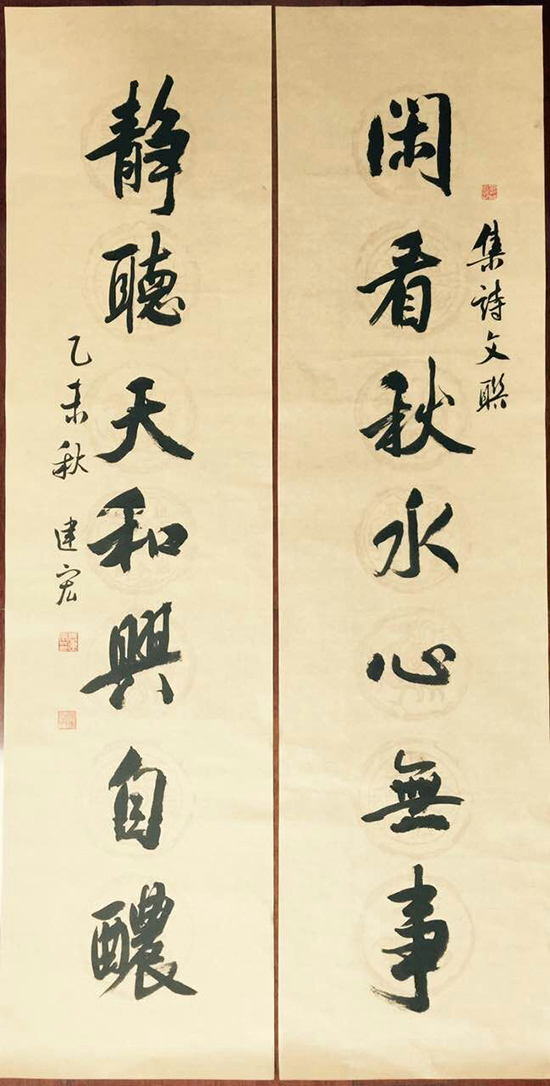 集詩文聯
閑看秋水心無事
静聽天和興自醲
乙未秋 建宏